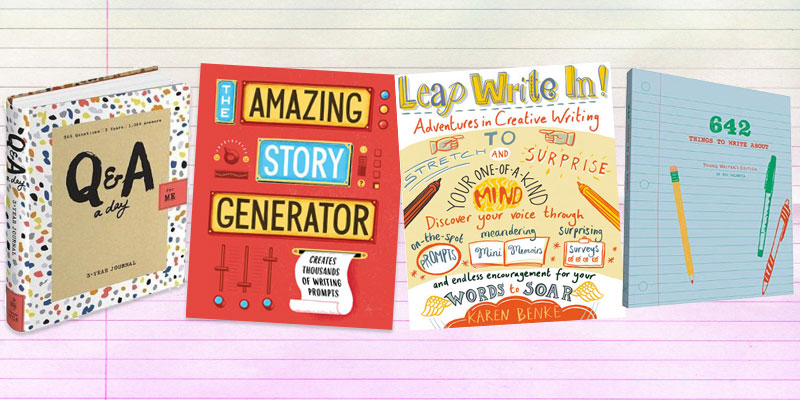 365 Questions · 3 Years · 1,095 answers
Q&A
a day
for
ME
3-YEAR JOURNAL
Q&A
3-YEAR JOURNAL
THE
AMAZING
STORY
GENERATOR
CREATES
THOUSANDS
OF WRITING
PROMPTS
Leap Write In!
Adventures in Creative Writing
TO
STRETCH AND SURPRISE
YOUR ONE-OF-A-KIND
MIND
Discover your voice through
on-the-spot meandering surprising
PROMPTS Mini Memoirs Surveys
and endless encouragement for your
WORDS to SOAR
KAREN BENKE
642
THINGS TO WRITE ABOUT
Young Writer's Edition
BY 826 VALENCIA